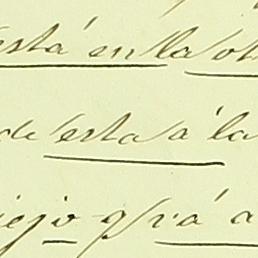 está en la ot
de esta á la
iejo q/r á a